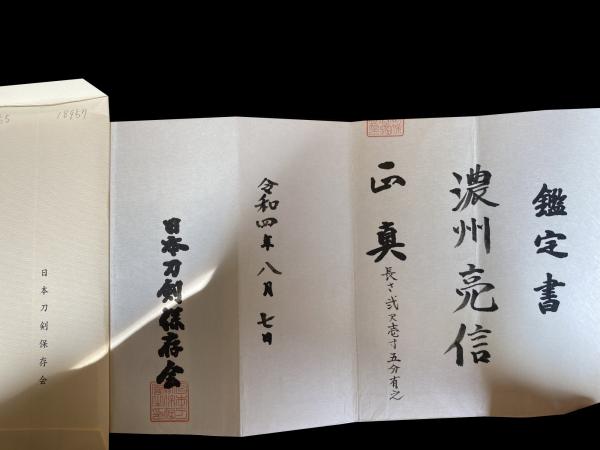 鑑定書
濃州亮信
正真
長さ弐尺壱寸五分有之
令和四年八月七日
日本刀剣保存会
18957
日本刀剣保存会